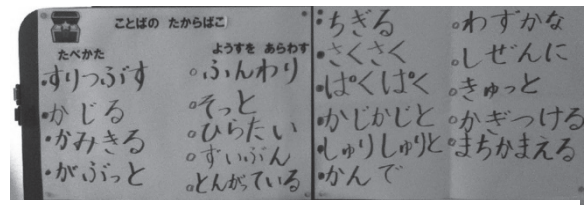 ことばの たからばこ
たべかた
・すりつぶす
・かじる
・かみきる
・がぶっと
ようすを あらわす
○ふんわり
○そっと
○ひらたい
○すいぶん
○とんがっている
・ちぎる
・さくさく
・ぱくぱく
・かじかじと
・しゅりしゅりと
・かんで
○わずかな
○しぜんに
○きゅっと
○かぎつける
○まちかまえる